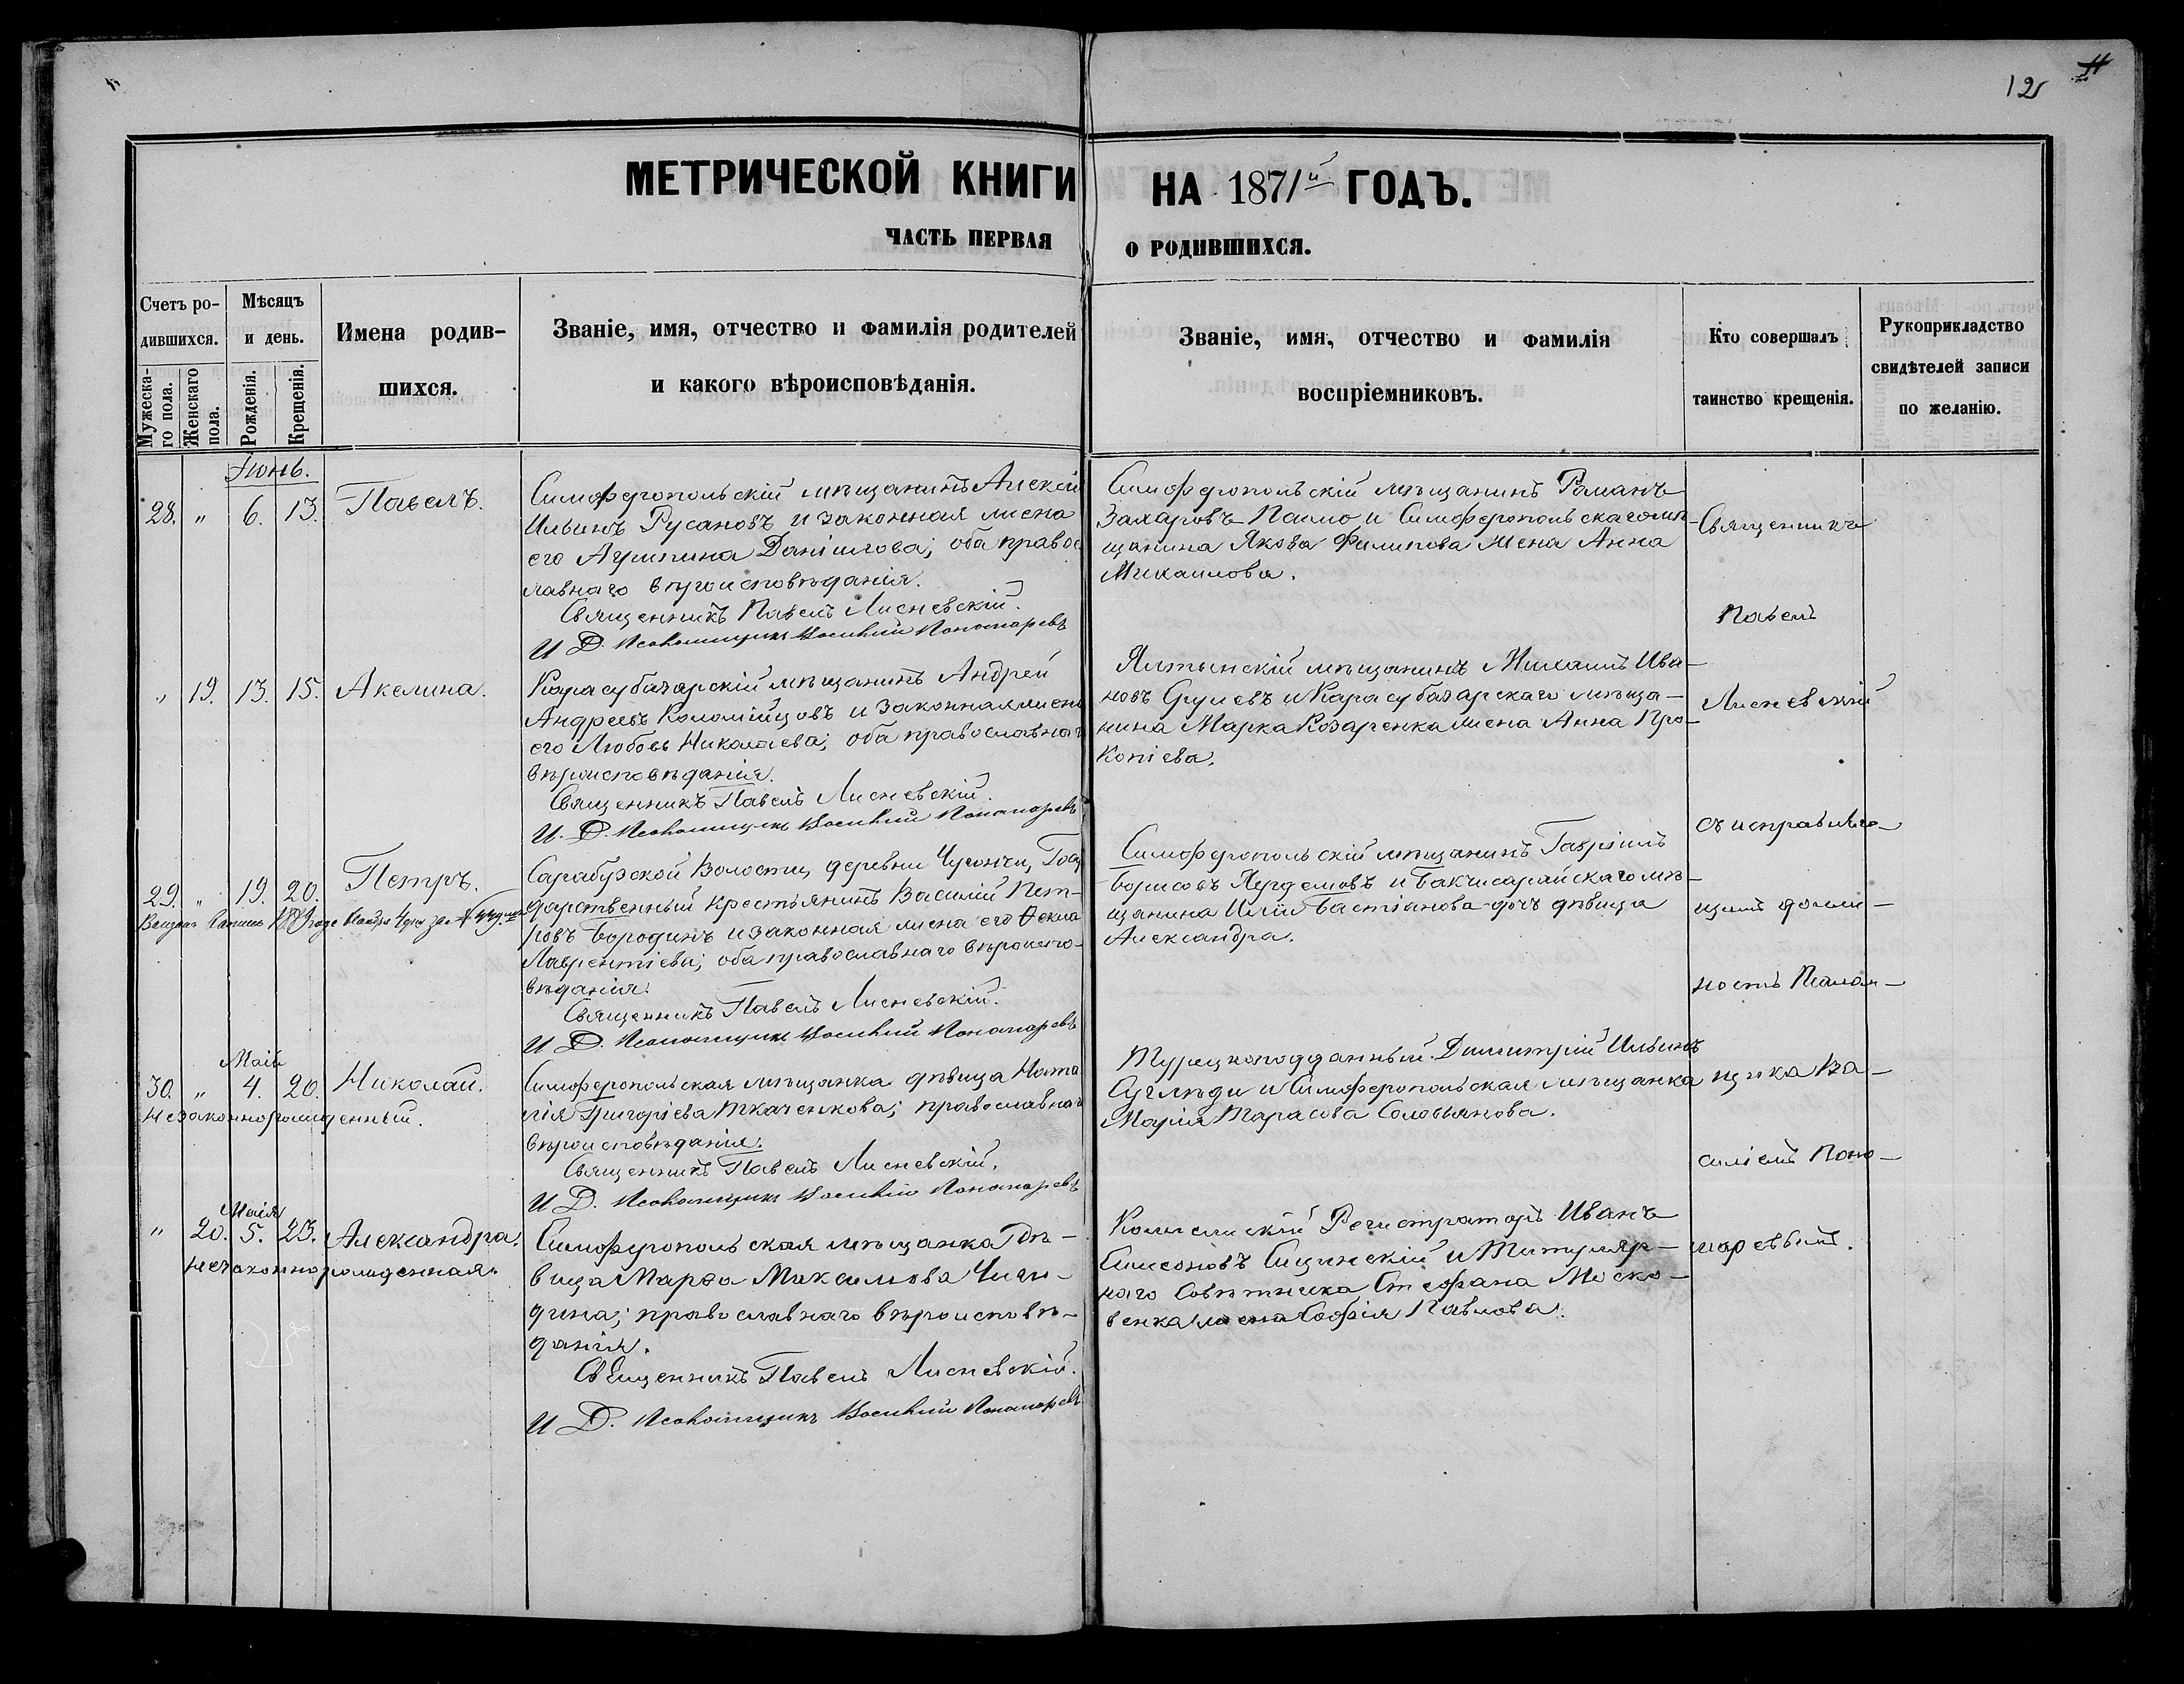 12
МЕТРИЧЕСКОЙ КНИГИ НА 1871й ГОДЪ.
ЧАСТЬ ПЕРВАЯ О РОДИВШИХСЯ.
Счетъ ро-
дившихся.
Мужеска-
го пола.
Женскаго
пола.
Мѣсяцъ
и день.
Рожденія.
Крещенія.
Имена родив-
шихся.
Званіе, имя, отчество и фамилія родителей
и какого вѣроисповѣданія.
Званіе, имя, отчество и фамилія
воспріемниковъ.
Кто совершалъ
таинство крещенія.
Рукоприкладство
свидѣтелей записи
по желанію.
Іюнь.
28. " 6. 13. Павелъ.
Симферопольскій мѣщанинъ Алексій
Ильинъ Русановъ и законная жена
его Агрипина Даніилова; оба правос
лавнаго вѣроисповѣданія.
Священникъ Павелъ Лисневскій.
И. Д. Псаломщика Василій Пономаревъ
Симферопольскій мѣщанинъ Романъ
Захаровъ и Симферопольскаго мѣ-
щанина Якова Филипова жена Анна
Михаилова.
" 19. 13. 15. Акелина.
Карасубазарскій мѣщанинъ Андрей
Андреевъ Коломійцовъ и законная жена
его Любовь Николаева; оба православнаг
вѣроисповѣданія.
Священникъ Павелъ Лисневскій.
И. Д. Псаломщика Василій Пономаревъ
Ялтынскій мѣщанинъ Михаилъ Ива-
новъ и Карасубазарскаго мѣща-
нина Марка Козаренка жена Анна Про-
копіева.
29. " 19. 20. Петръ.
Сарабузской Волости, деревни Госу
дарственный крестьянинъ Василій Пет-
ровъ Бородинъ и законная жена его Ѳекла
Лаврентіева; оба православнаго вѣроиспо-
вѣданія.
Священникъ Павелъ Лисневскій.
И Д. Псаломщика Василій Пономаревъ
Симферопольскій мѣщанинъ Гавріилъ
Борисовъ и Бакчисарайскаго мѣ-
щанина Иліи Бастіанова дочь дѣвица
Александра.
Маія
30. " 4. 20. Николай.
Незаконнорожденный.
Симферопольская мѣщанка дѣвица Ната
лія Григоріева Ткаченкова; православнаг
вѣроисповѣданія.
Священникъ Павелъ Лисневскій.
И Д. Псаломщика Василій Пономаревъ
Турецкоподданный Димитрій Ильинъ
и Симферопольская мѣщанка
Марія Тарасова Соловьянова.
Маія
" 20. 5. 23. Александра.
Незаконнорожденная.
Симферопольская мѣщанка Дѣ-
вица Марѳа Максимова Чиги-
рина; православнаго вѣроисповѣ-
данія.
Священникъ Павелъ Лисневскій.
И Д. Псаломщика Василій Пономаревъ
Коллежскій Регистраторъ Иванъ
Симеоновъ и Титуляр-
наго Совѣтника Стефана Моско-
венка жена Софія Павлова.
Священникъ
Павелъ
Лисневскій
съ исправляю-
щимъ долж-
ность Псалом-
щика Ва-
силіемъ Поно-
маревымъ.